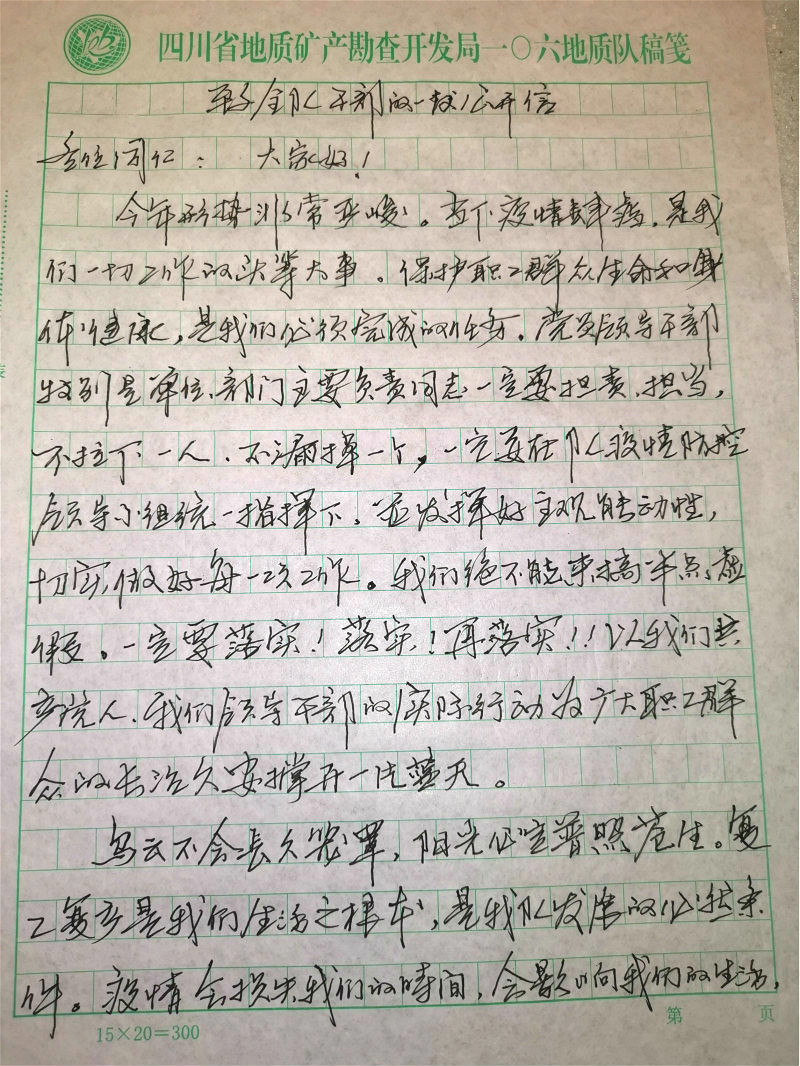 四川省地质矿产勘查开发局一〇六地质队稿笺
致全队干部的一封公开信
各位同仁：大家好！
今年形势非常严峻。当下疫情肆虐，是我
们一切工作的头等大事。保护职工群众生命和身
体健康，是我们必须完成的任务。党员领导干部
特别是单位、部门主要负责同志一定要担责、担当，
不拉下一人、不漏掉一个，一定要在队疫情防控
领导小组统一指挥下，并发挥好主观能动性，
切实做好每一次工作。我们绝不能来搞半点虚
假。一定要落实！落实！再落实！！以我们共
产党人、我们领导干部的实际行动为广大职工群
众的长治久安撑开一片蓝天。
乌云不会长久笼罩，阳光必定普照苍生。复
工复产是我们生活之根本，是我队发展的必然条
件。疫情会损失我们的时间，会影响我们的生活，
15×20=300
第 页